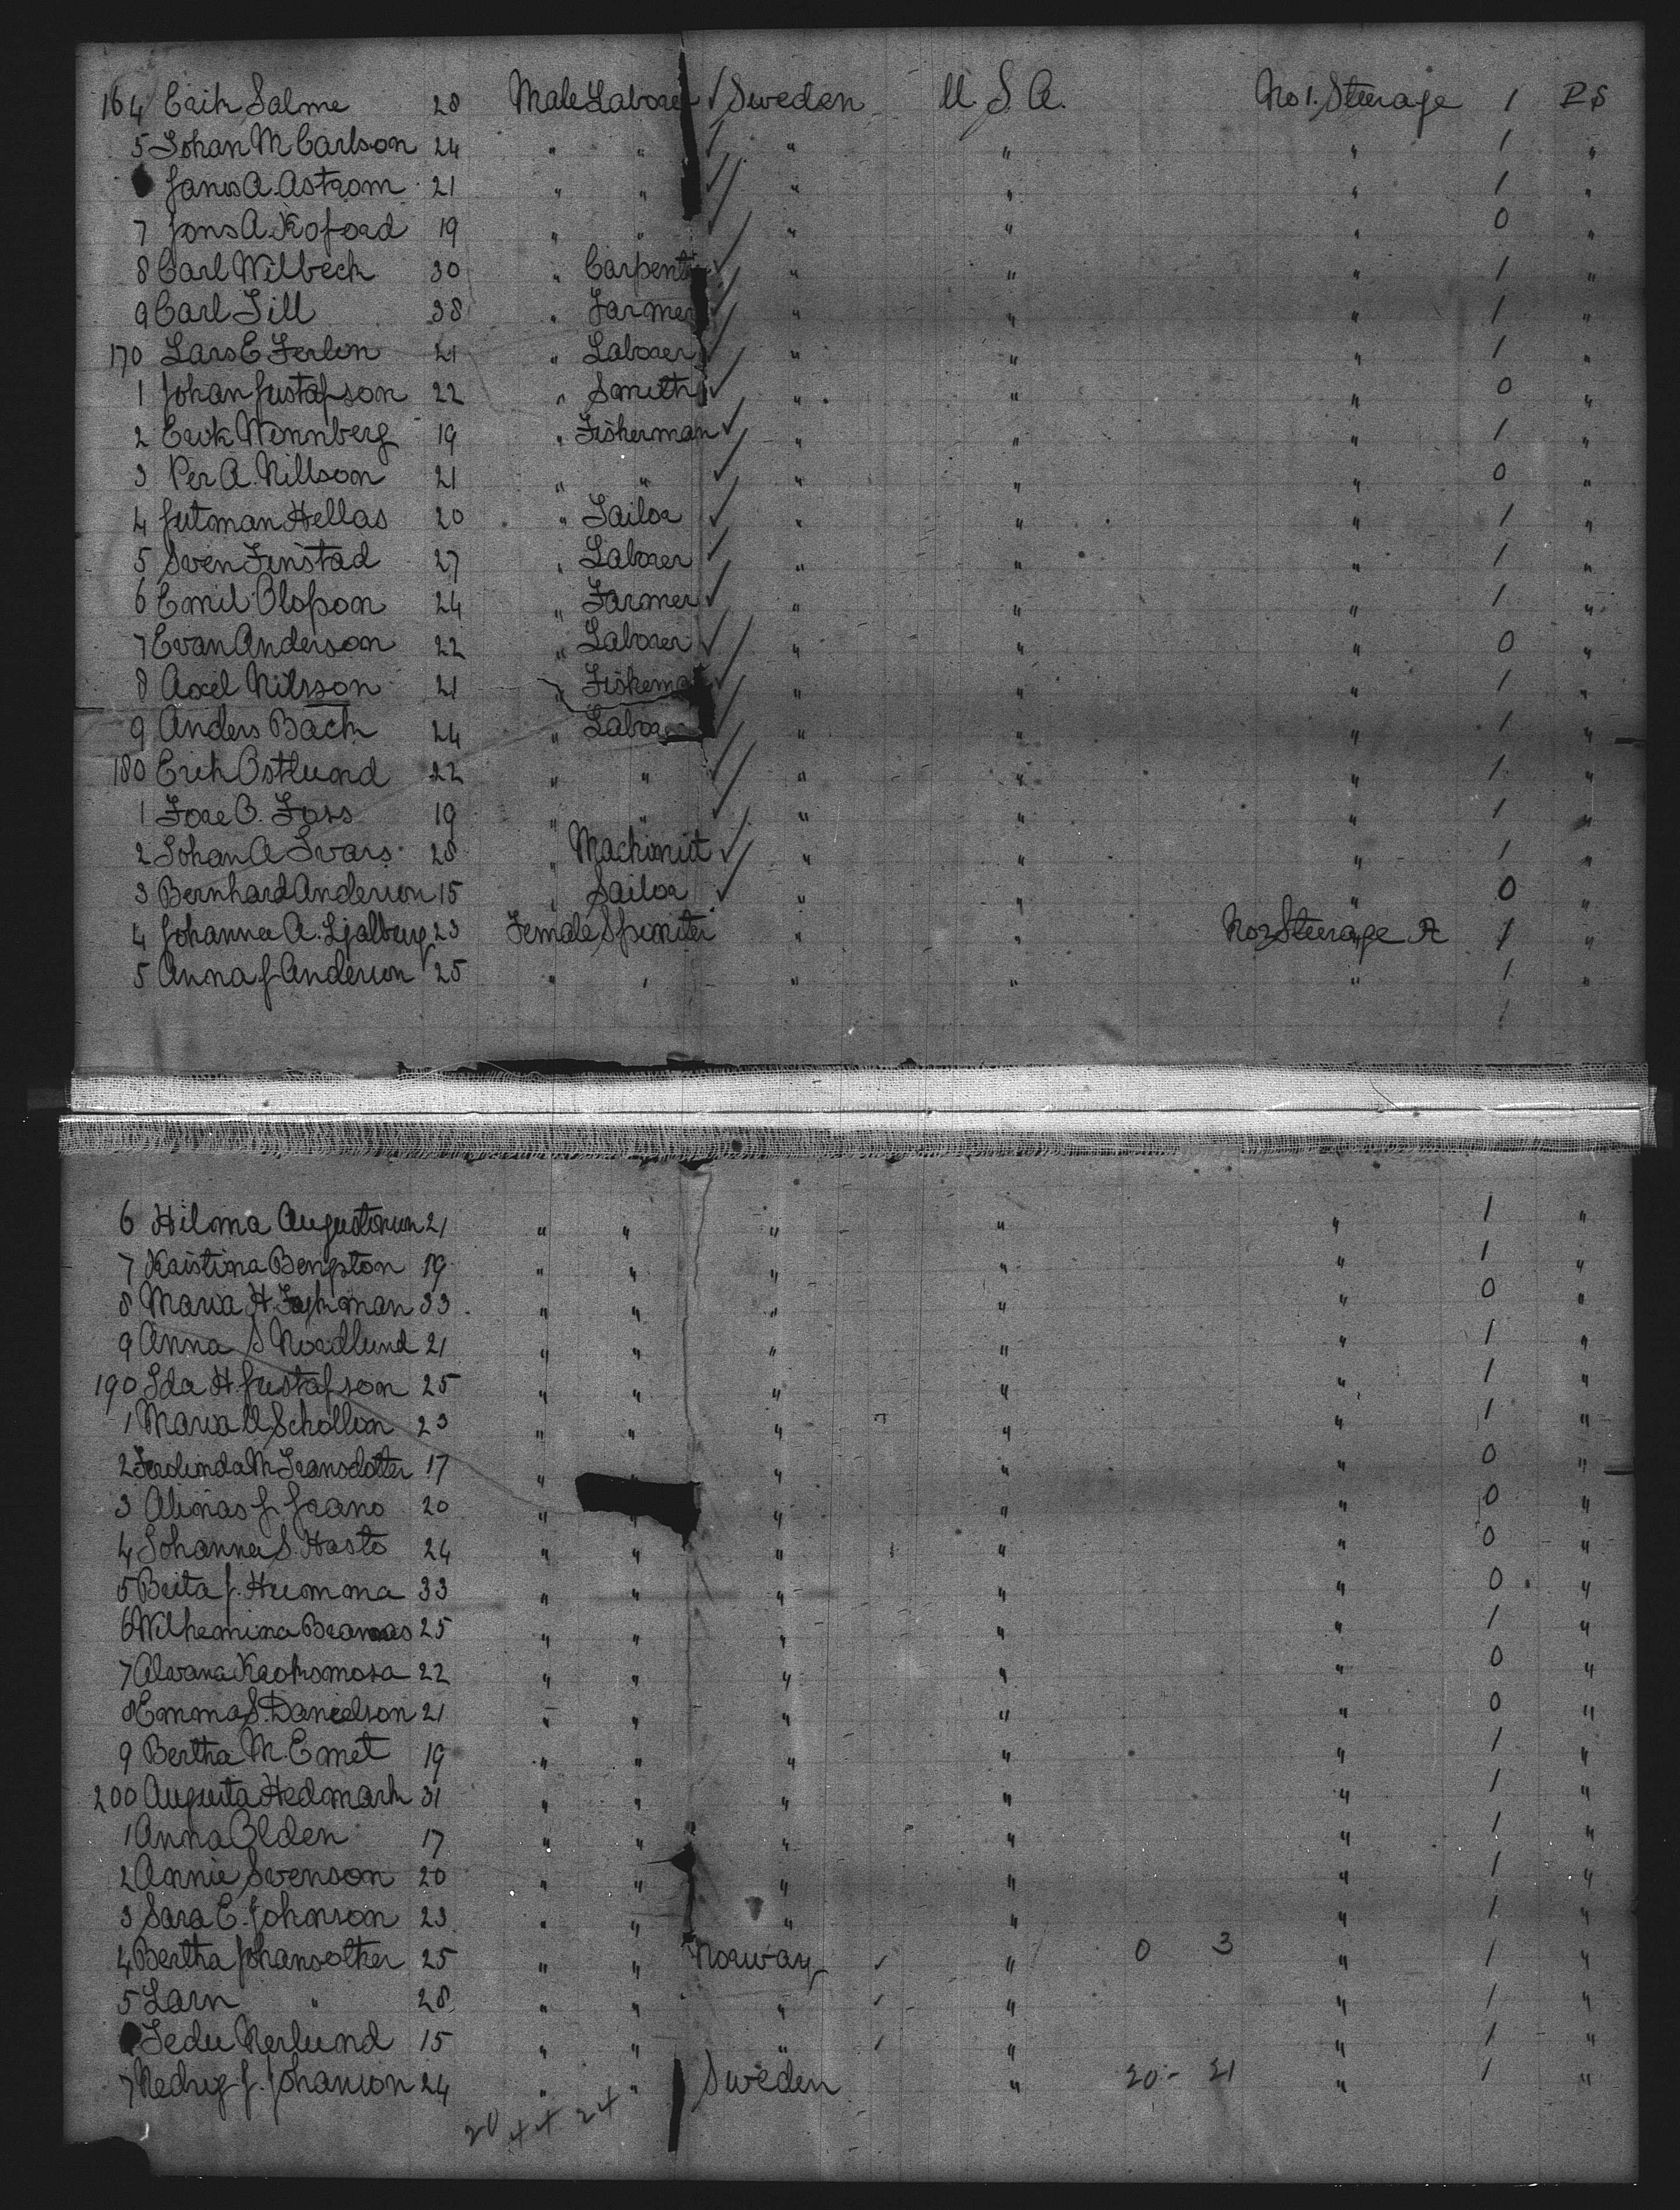 164 Erik Salme 28 Male Laborer ✓ Sweden U. S. A. No 1. Steerage 1 P S
5 Johan M Carlson 24 " " ✓ " " " 1 "
Janis A. Astrom 21 " " ✓ " " " 1 "
7 Jons A. Koford 19 " " ✓ " " " 0 "
8 Carl Wilbeck 30 " Carpenter ✓ " " " 1 "
9 Carl Sill 38 " Farmer ✓ " " " 1 "
170 Lars E Ferlin 21 " Laborer ✓ " " " 1 "
1 Johan Gustafson 22 " Smith ✓ " " " 0 "
2 Erik Wennberg 19 " Fisherman ✓ " " " 1 "
3 Per A. Nillson 21 " " ✓ " " " 0 "
4 Gutman Hellas 20 " Tailor ✓ " " " 1 "
5 Sven Finstad 27 " Laborer ✓ " " " 1 "
6 Emil Olsson 24 " Farmer ✓ " " " 1 "
7 Evan Anderson 22 " Laborer ✓ " " " 0 "
8 Axel Nilsson 21 " Fiskema ✓ " " " 1 "
9 Anders Back 24 " Labore ✓ " " " 1 "
180 Erik Ostlund 22 " " ✓ " " " 1 "
1 Tore O. Foss 19 " " ✓ " " " 1 "
2 Johan A Ivars 28 " Machinist ✓ " " " 1 "
3 Bernhard Anderson 15 " Sailor ✓ " " " 0 "
4 Johanna A. 23 Female Spinster " " No 2 Steerage A 1 "
5 Anna J Anderson 25 " " " " " 1 "
6 Hilma Augustson 21 " " " " " 1 "
7 Kristina Bengtson 19 " " " " " 1 "
8 Maria H. 33 " " " " " 0 "
9 Anna S Nordlund 21 " " " " " 1 "
190 Ida H. Gustafson 25 " " " " " 1 "
1 Maria U Schollin 23 " " " " " 1 "
2 Ferdinda M Fransdotter 17 " " " " 0 "
3 Alinas J. Grano 20 " " " " " 0 "
4 Johanna S. Hasto 24 " " " " " 0 "
5 Brita J. Humma 33 " " " " " 0 "
6 Wilhemina 25 " " " " " 1 "
7 22 " " " " " 0 "
8 Emma S. Danielson 21 " " " " " 0 "
9 Bertha M. Emet 19 " " " " " 1 "
200 Augusta Hedmark 31 " " " " " 1 "
1 Anna Olden 17 " " " " " 1 "
2 Annie Svenson 20 " " " " " 1 "
3 Sara E. Johnson 23 " " " " " 1 "
4 Bertha 25 " " Norway ✓ " 0 3 " 1 "
5 Larn " 28 " " " ✓ " " 1 "
Nerlund 15 " " " ✓ " " 1 "
7 Hedvig J. Johanson 24 " " Sweden " 20 - 21 " 1 "
20 44 24